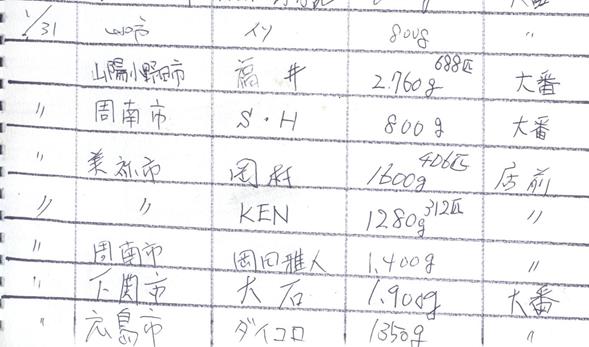 1/31 市 イソ 800g 〃
山陽小野田市 福井 2.760g 688匹 大番
〃 周南市 S・H 800g 大番
〃 美祢市 岡村 1600g 406匹 店前
〃 〃 KEN 1280g 312匹 〃
〃 周南市 岡田雅人 1.400g 〃
〃 下関市 大石 1.900g 大番
〃 広島市 ダイコロ 1350g 〃